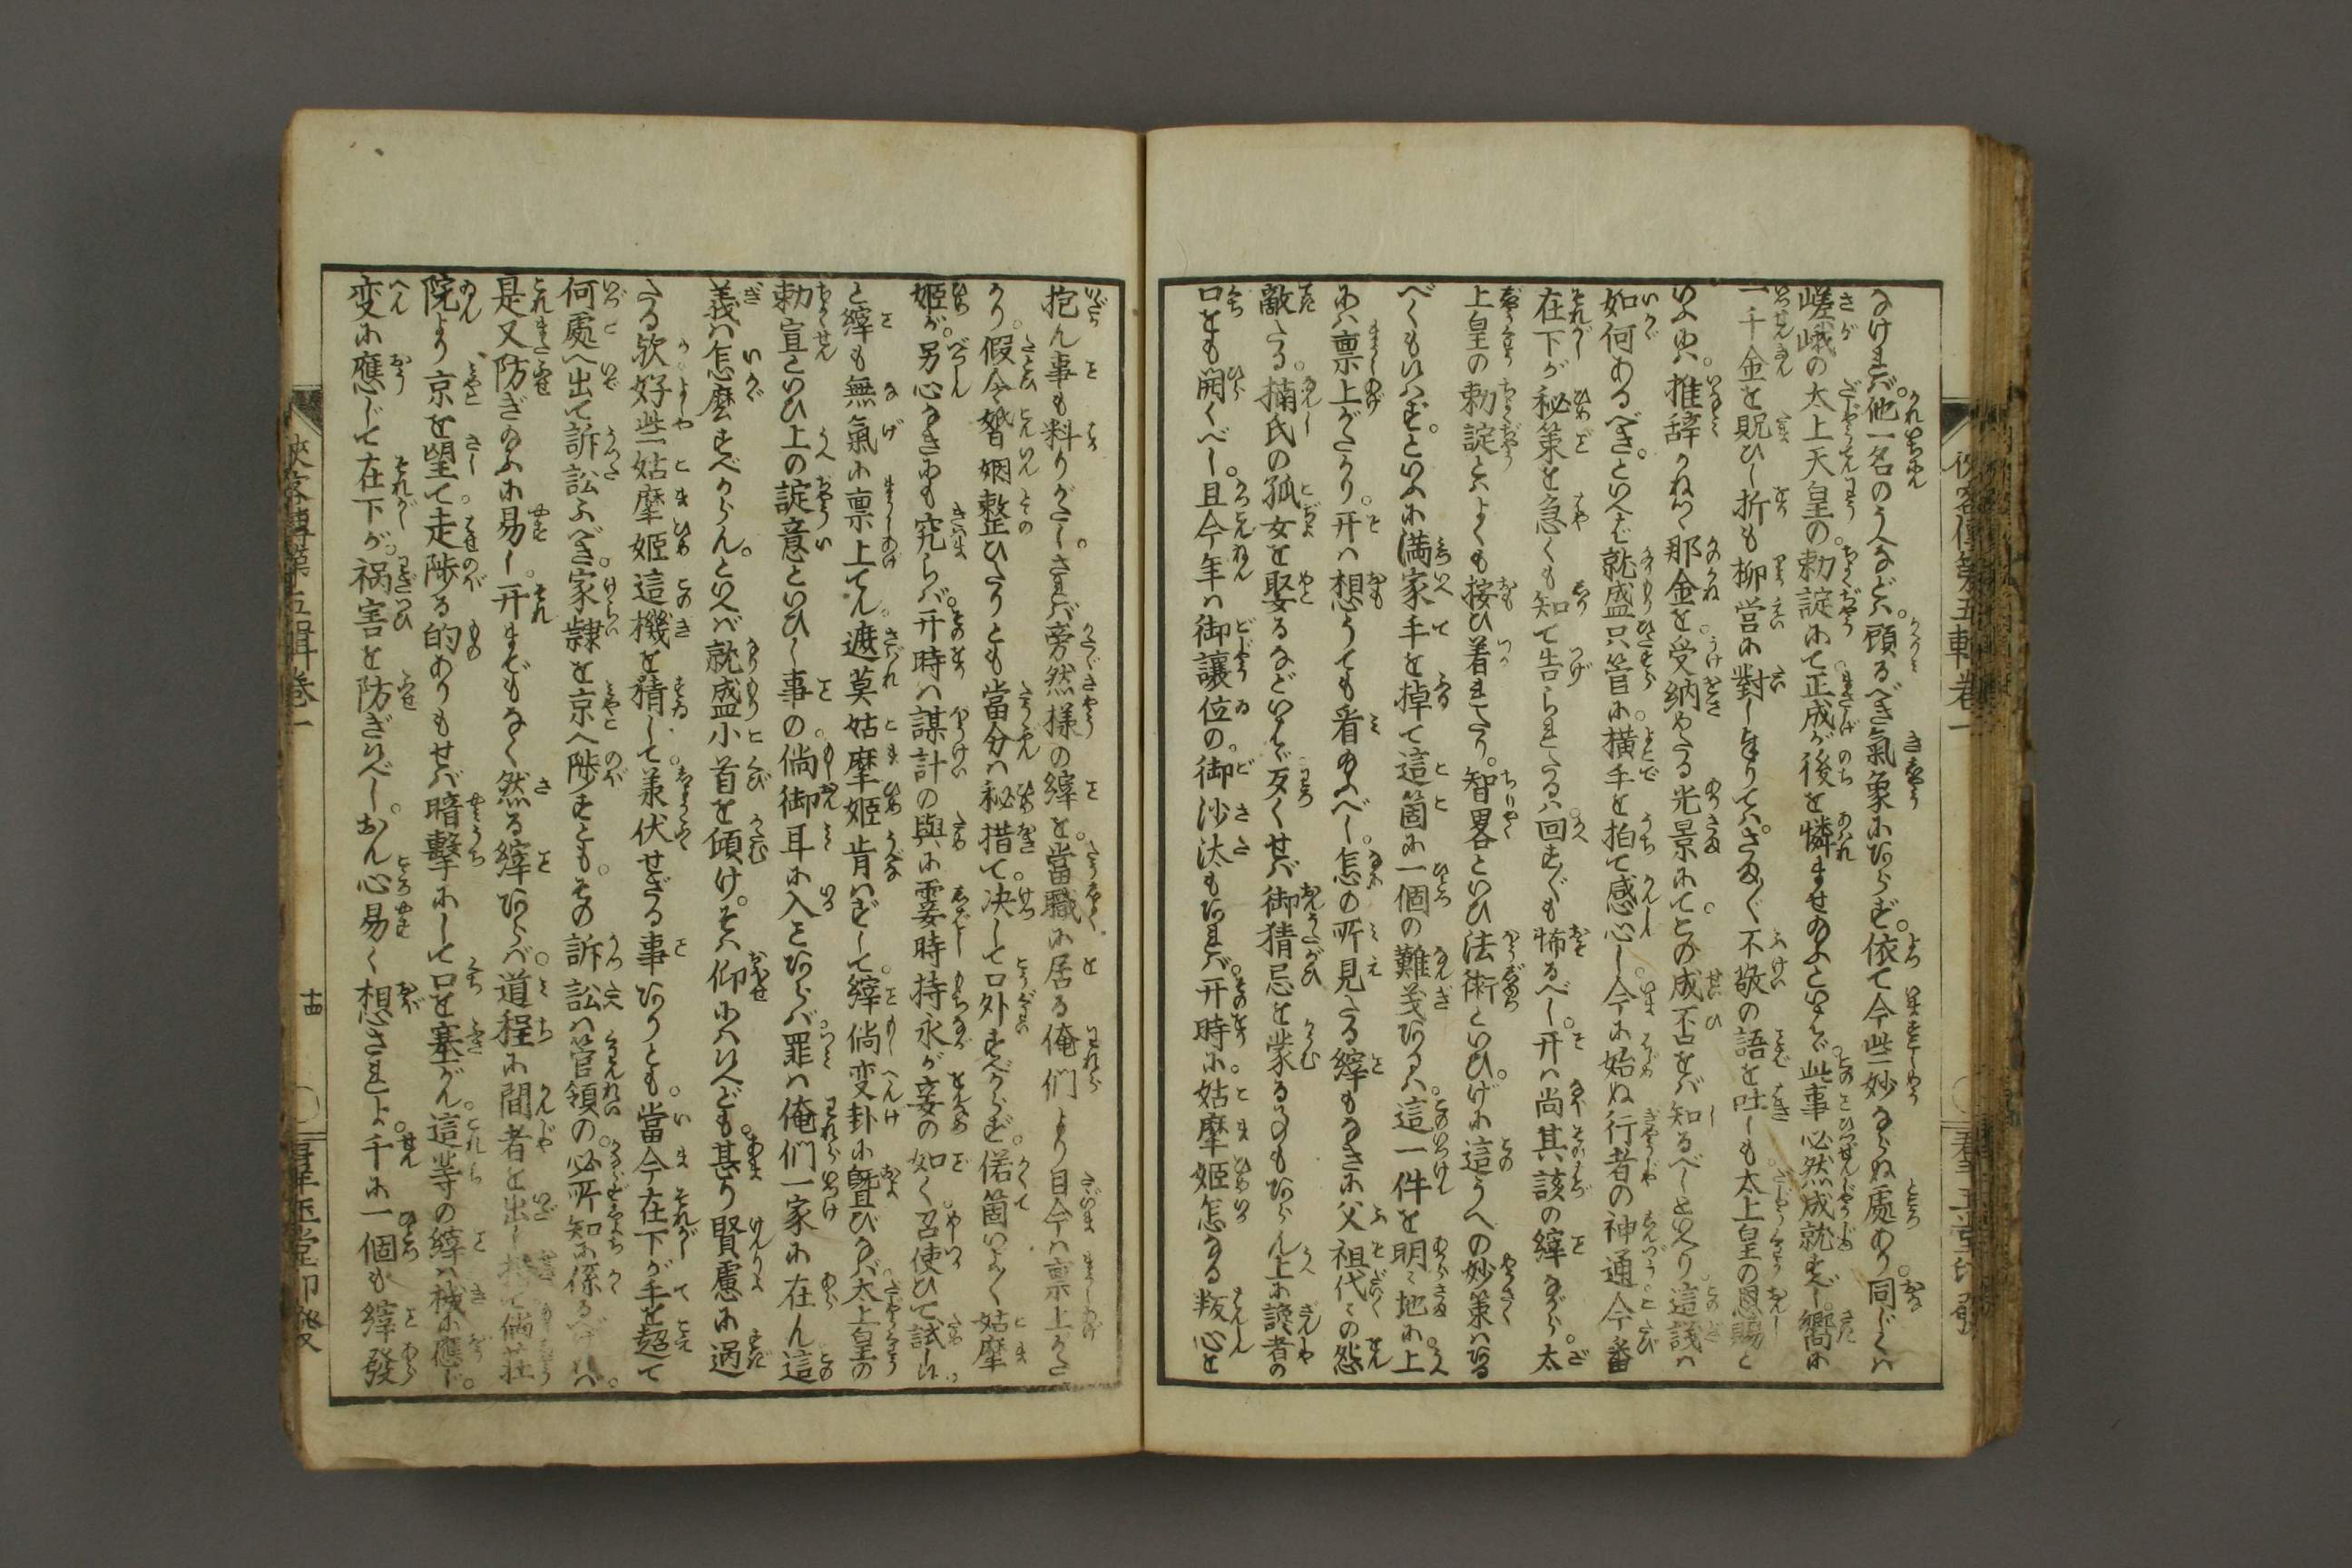 なければ。他一名のうへなどハ。顧るべき氣象にあらず。依て今些妙ならぬ處あり。同じくハ
嵯峨の太上天皇の。勅諚にて正成が後を憐ませ給ふといハヾ。此事必然成就すべし。嚮に
一千金を貺ひし折も柳営に對しまゐりてハ。さま〴〵不敬の語を吐しも太上皇の恩賜と
いふにハ。推辞かねつゝ那金を受納やたる光景にて。この成不をバ知るべしといへり。這議ハ
如何あるべき。といへバ就盛只管に。横手を拍て感心し。今に始ぬ行者の神通今番
在下が秘策を急くも知て告られたるハ。回すぐも怖るべし。开ハ尚其該の縡ながら。太
上皇の勅諚とハよくも按ひ着れたり。智畧といひ法術といひ。げに這うへの妙策ハある
べくもいハず。といふに満家手を掉て這箇に一個の難義あるハ。這一件を明々地に上
にハ稟上がたかり。开ハ想うても看給ふべし。怎の所見たる縡もなきに父祖代々の怨
敵たる。楠氏の孤女を娶るなどいハヾ歹くせバ御猜忌を蒙るのもあらん上に讒者の
口をも開くべし。且今年ハ御讓位の。御沙汰もあれバ。开時に。姑摩姫怎なる叛心を
抱ん事も料りがたし。されバ旁然様の縡を。當職に居る俺們より目今ハ稟上がた
かり。假令婚姻整ひたりとも當分ハ秘措て。决して口外すべからず。偖箇いよ〳〵姑摩
姫が。另心なきにも究らバ。开時ハ謀計の與に霎時持永が妾の如く召使ひて試しハつ
と縡も無氣に稟上てん。遮莫姑摩姫肯ハずして。縡倘変卦に曁びなバ。太上皇の
勅宣といひ上の諚意といひし事の。倘御耳に入ことあらバ。罪ハ俺們一家に在ん這
義ハ怎麽すべからん。といへバ就盛小首を傾け。そハ仰にハいへども。甚り賢慮に過
たる欤好些姑摩姫這機を猜して。羕伏せざる事ありとも。當今在下が手を超て
何處へ出て訴訟ふべき。家隷を京へ陟すとも。その訴訟ハ管領の。必所知に係るべけれハ。
是又防ぎ給ふに易し。开までもなく然る縡あらバ。道程に間者を出し
院より京を望て走陟る的ありもせバ暗撃にして口を塞がん。這等の縡ハ機に應じ。
変に應じて在下が。禍害を防ぎいべし。おん心易く想されよ。千に一個も縡發
俠客傳第五輯卷一
十四
群玉堂印發